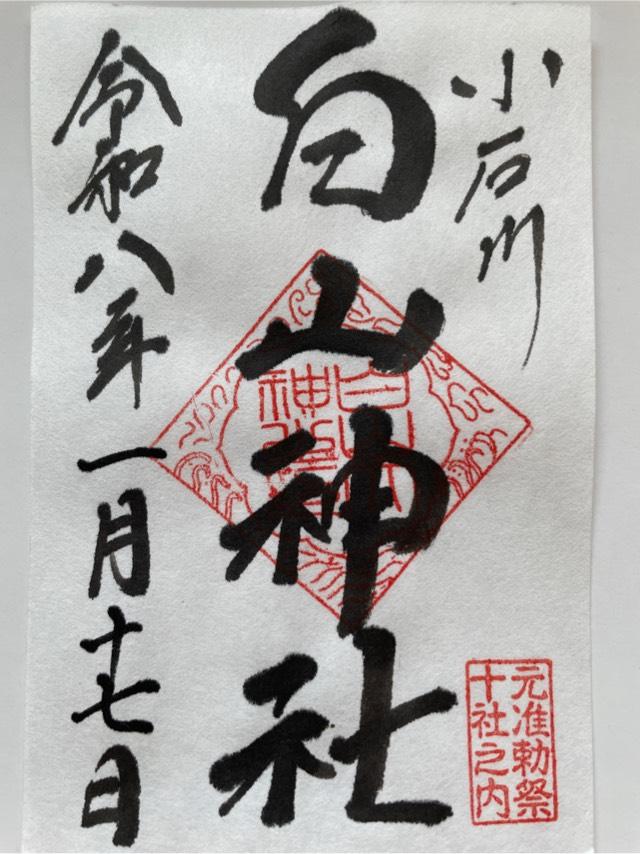 小石川
白山神社
令和八年一月十七日
白山
神社
元准勅祭
十社之内